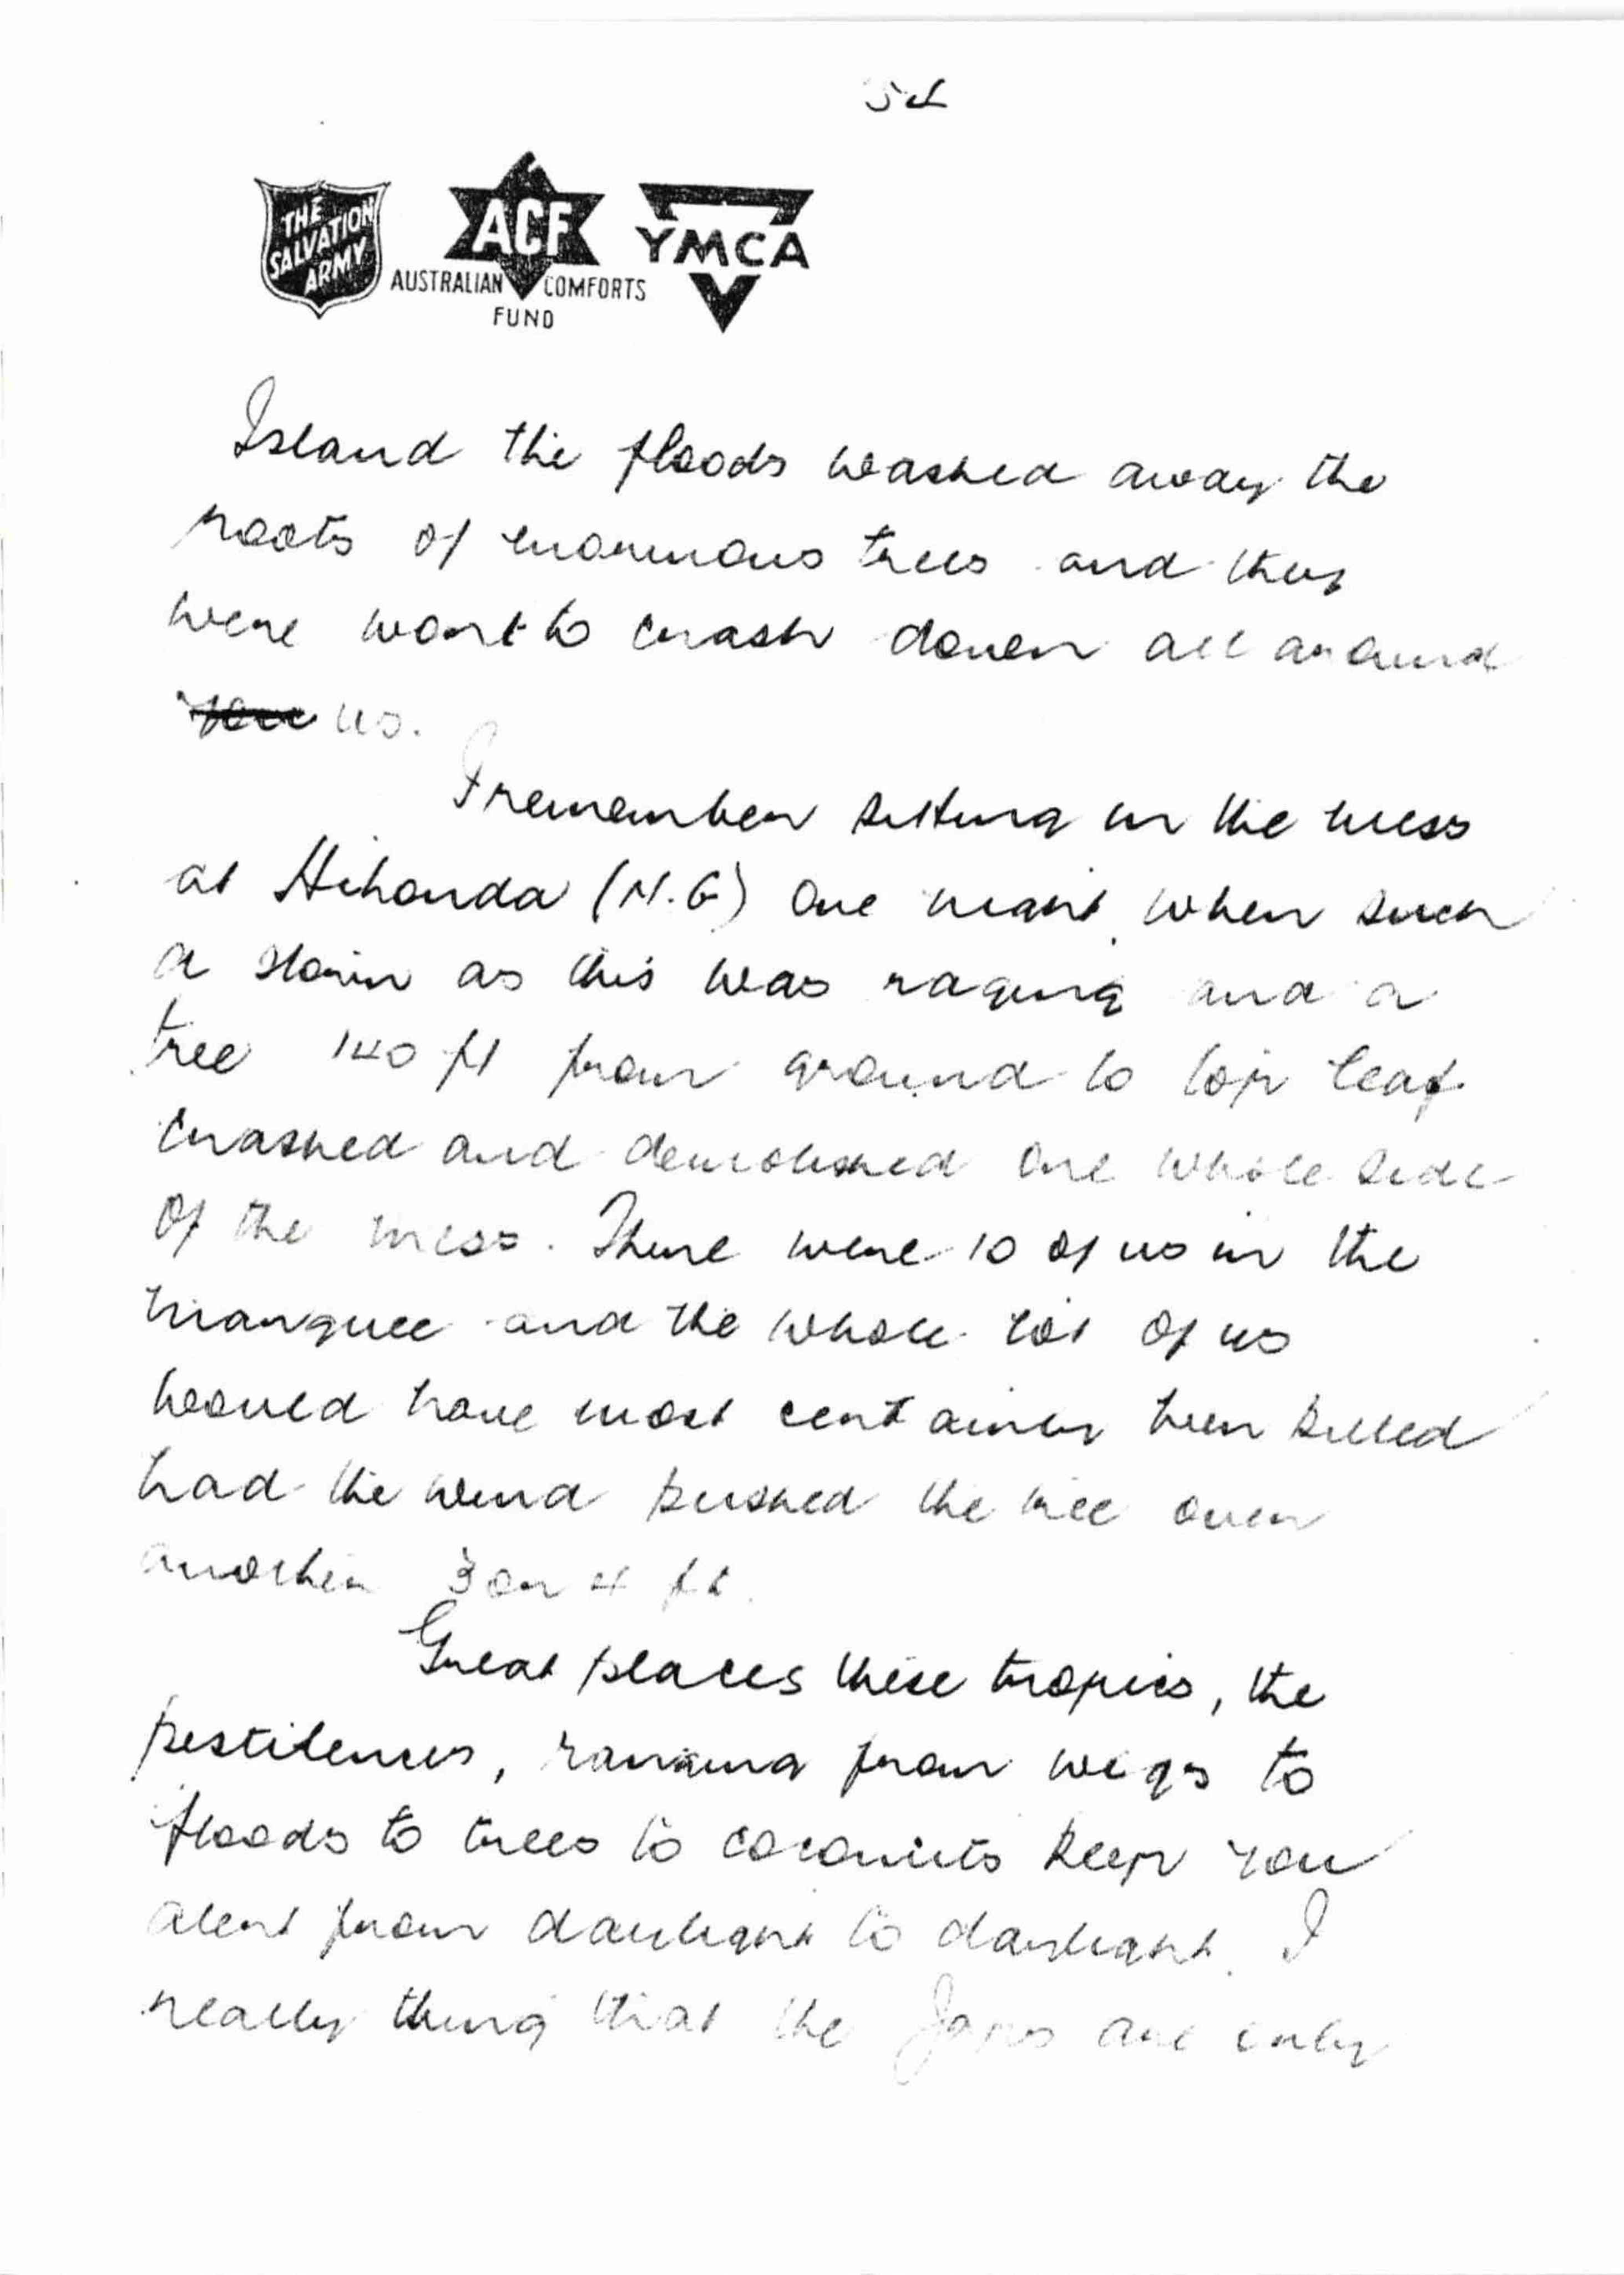 THE
SALVATION
ARMY
ACF
AUSTRALIAN COMFORTS
FUND
YMCA
Island the floods washed away the
roots of enormous trees and they
were wont to crash down all around
us.
I remember sitting in the mess
at (N.G) one night when such
a storm as this was raging and a
tree 140 ft from ground to top leaf
crashed and demolished one whole side
of the mess. There were 10 of us in the
marquee and the whole lot of us
would have most certainly been killed
had the wind pushed the tree over
another 3 or 4 ft.
Great places these tropics, the
pestilences, ranging from wogs to
floods to trees to coconuts keep you
alert from daylight to daylight. I
really thing that the Japs are only